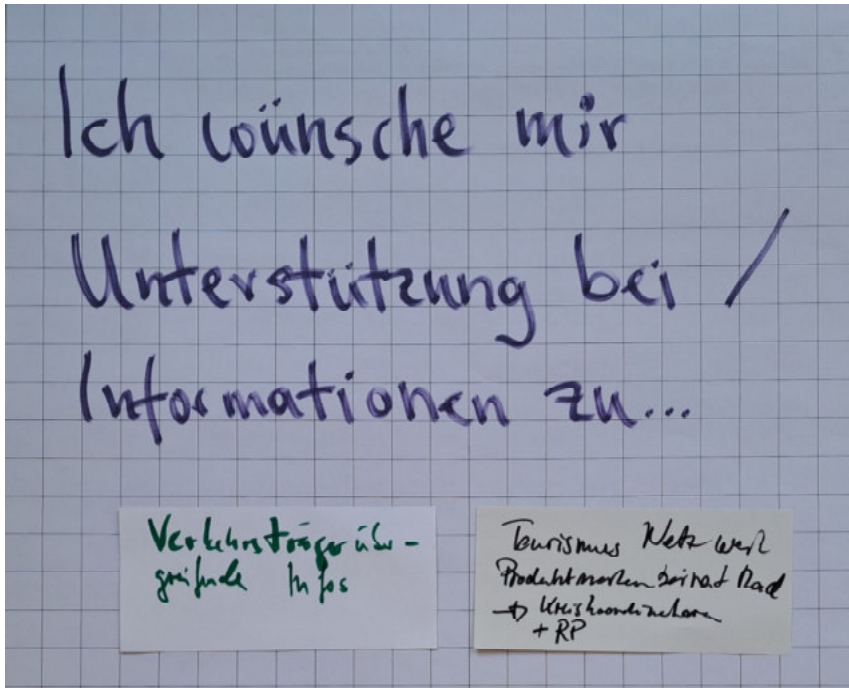 Ich wünsche mir
Unterstützung bei /
Informationen zu...
Verkehrsträgerüber-
greifende Infos
Tourismus Netzwerk
Produktmarken beirat Rad
→ Kreiskoordinatoren
+ RP